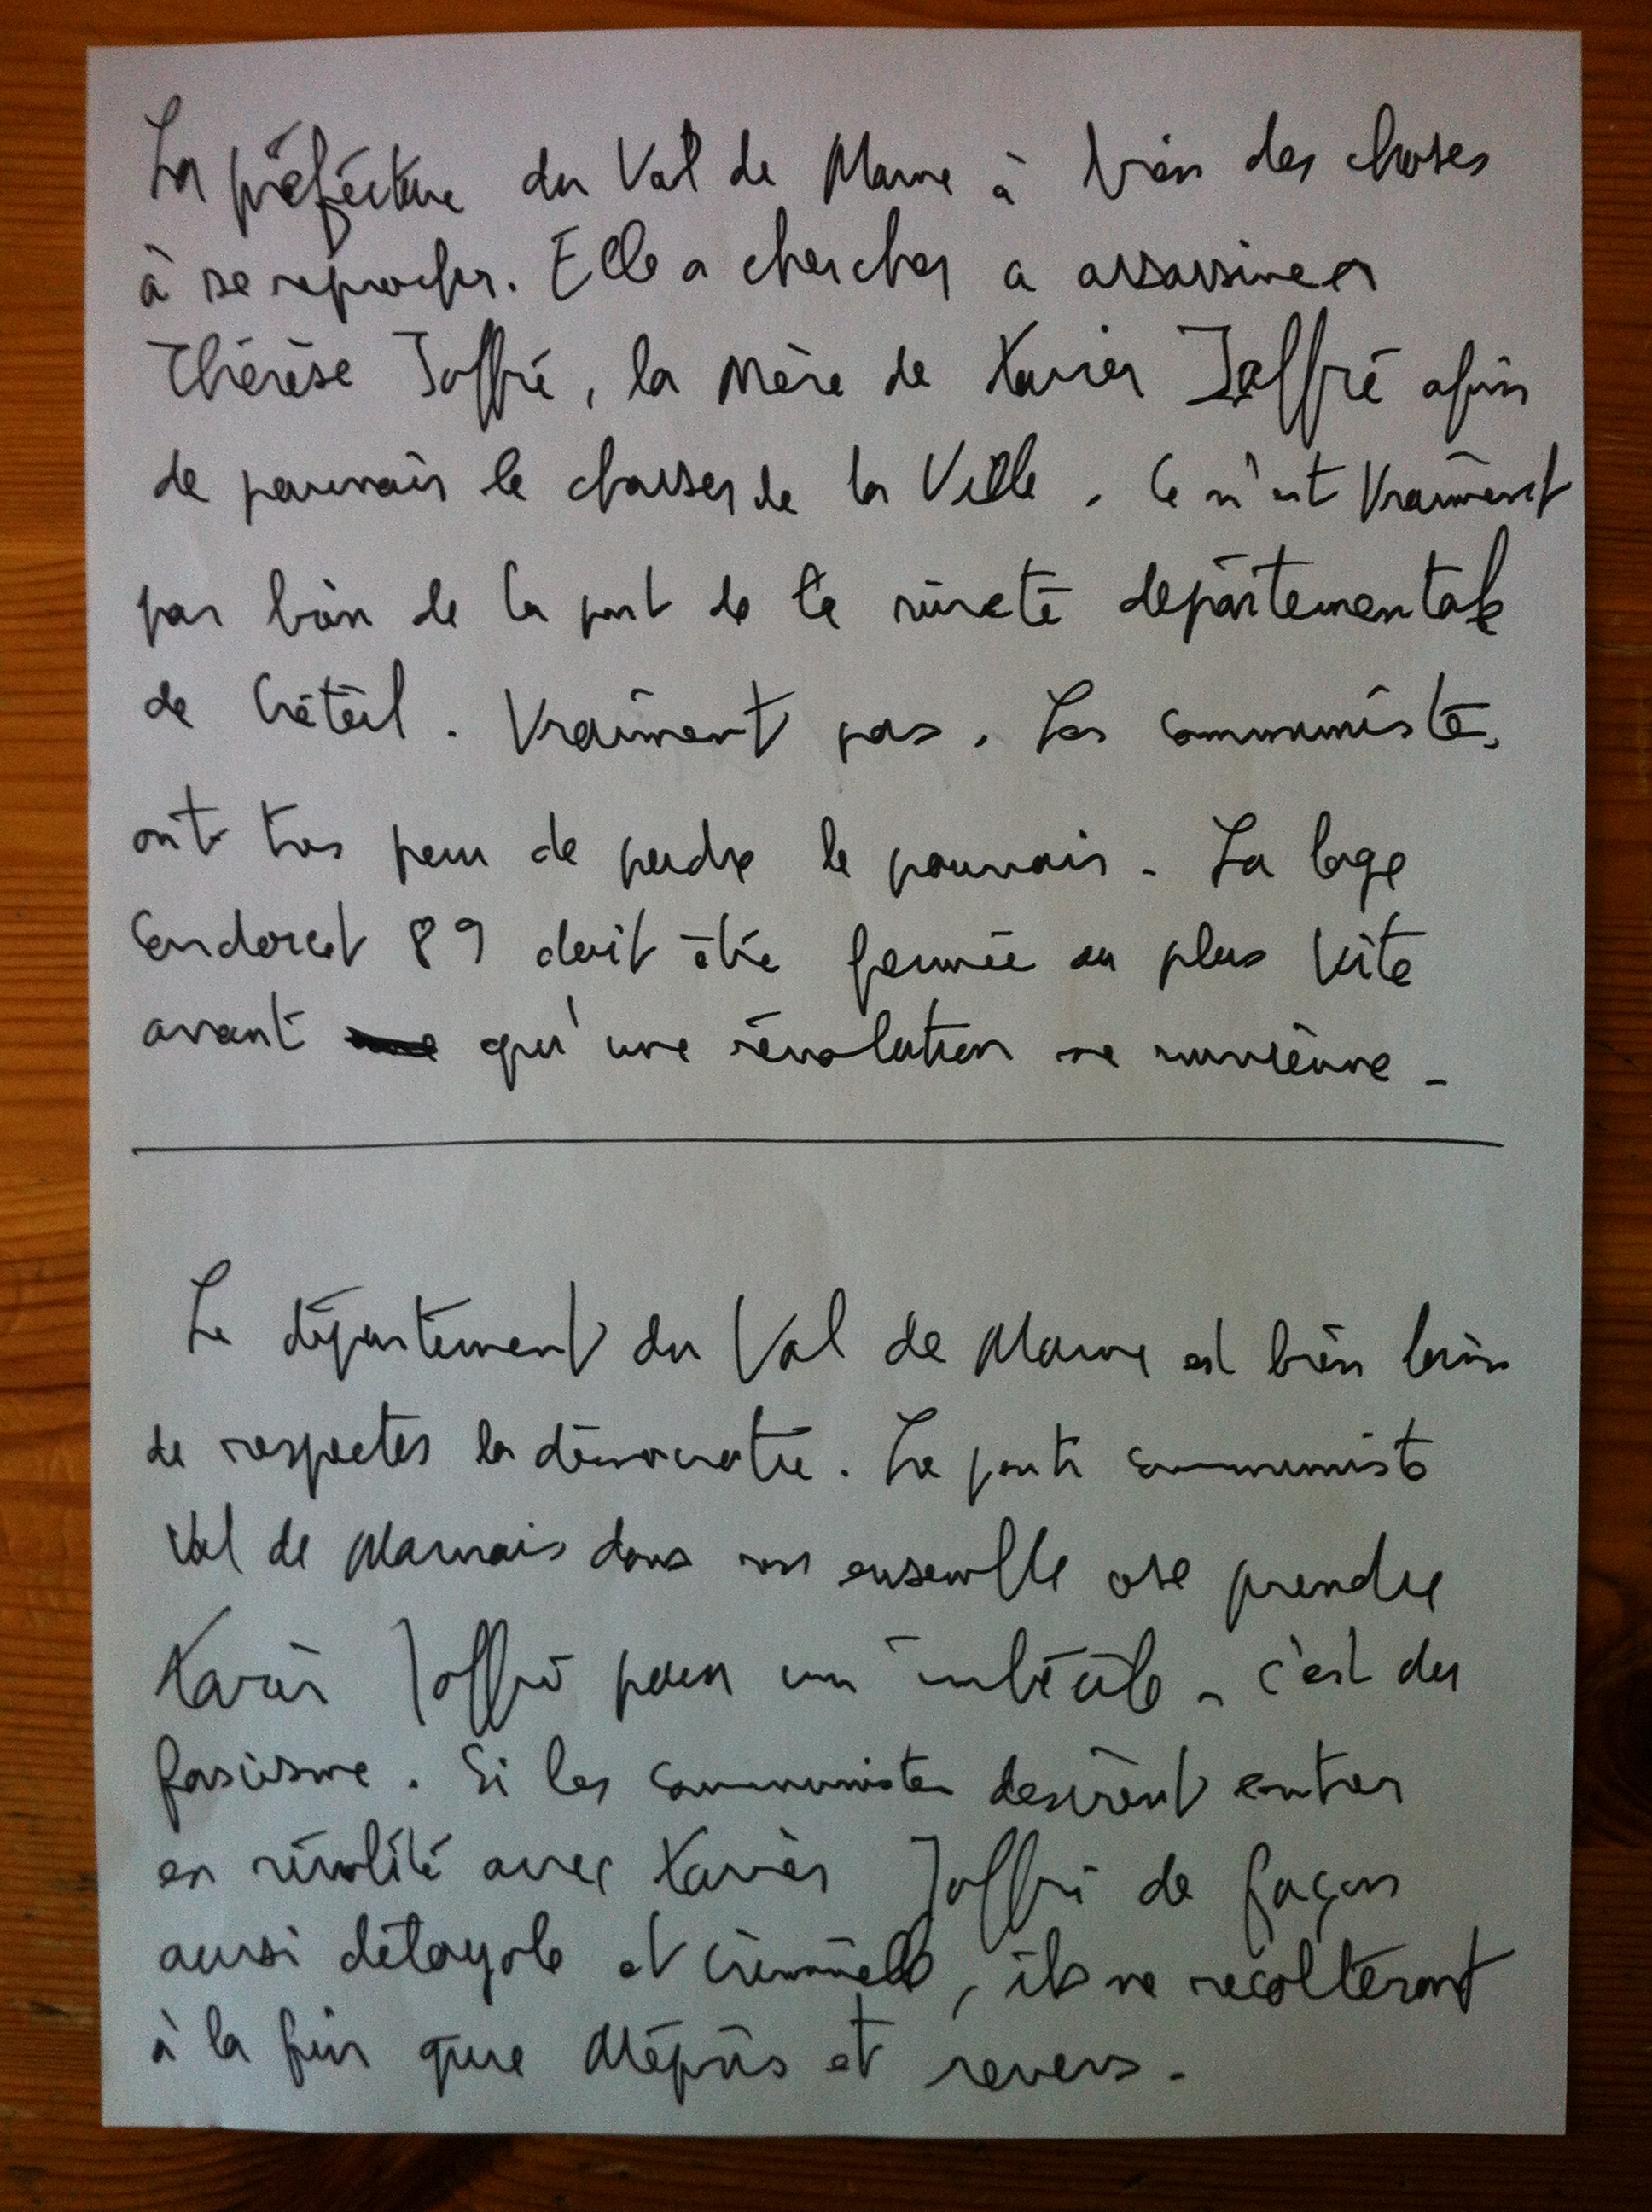 La préfecture du Val de Marne à bien des choses
à se reprocher. Elle a chercher a assassineer
Thérèse Joffré, la Mère de Xavier Joffré afin
de pouvoir le chasser de la Ville. Ce n'est Vraiment
pas bien de la part de la sûreté départementale
de Créteil. Vraiment pas. Les communistes
ont tres peur de perdre le pouvoir. La loge
Condorcet 89 doit être fermée au plus Vite
avant qu'une révolution ne survienne.
Le département du Val de Marne est bien loin
de respecter la démocratie. Le parti communiste
Val de Marnais dans son ensemble ose prendre
Xavier Joffré pour un imbécile. C'est du
fascisme. Si les communistes desirent entrer
en rivalité avec Xavier Joffré de façon
aussi déloyale et criminelle, ils ne recolteront
à la fin que Mépris et revers.